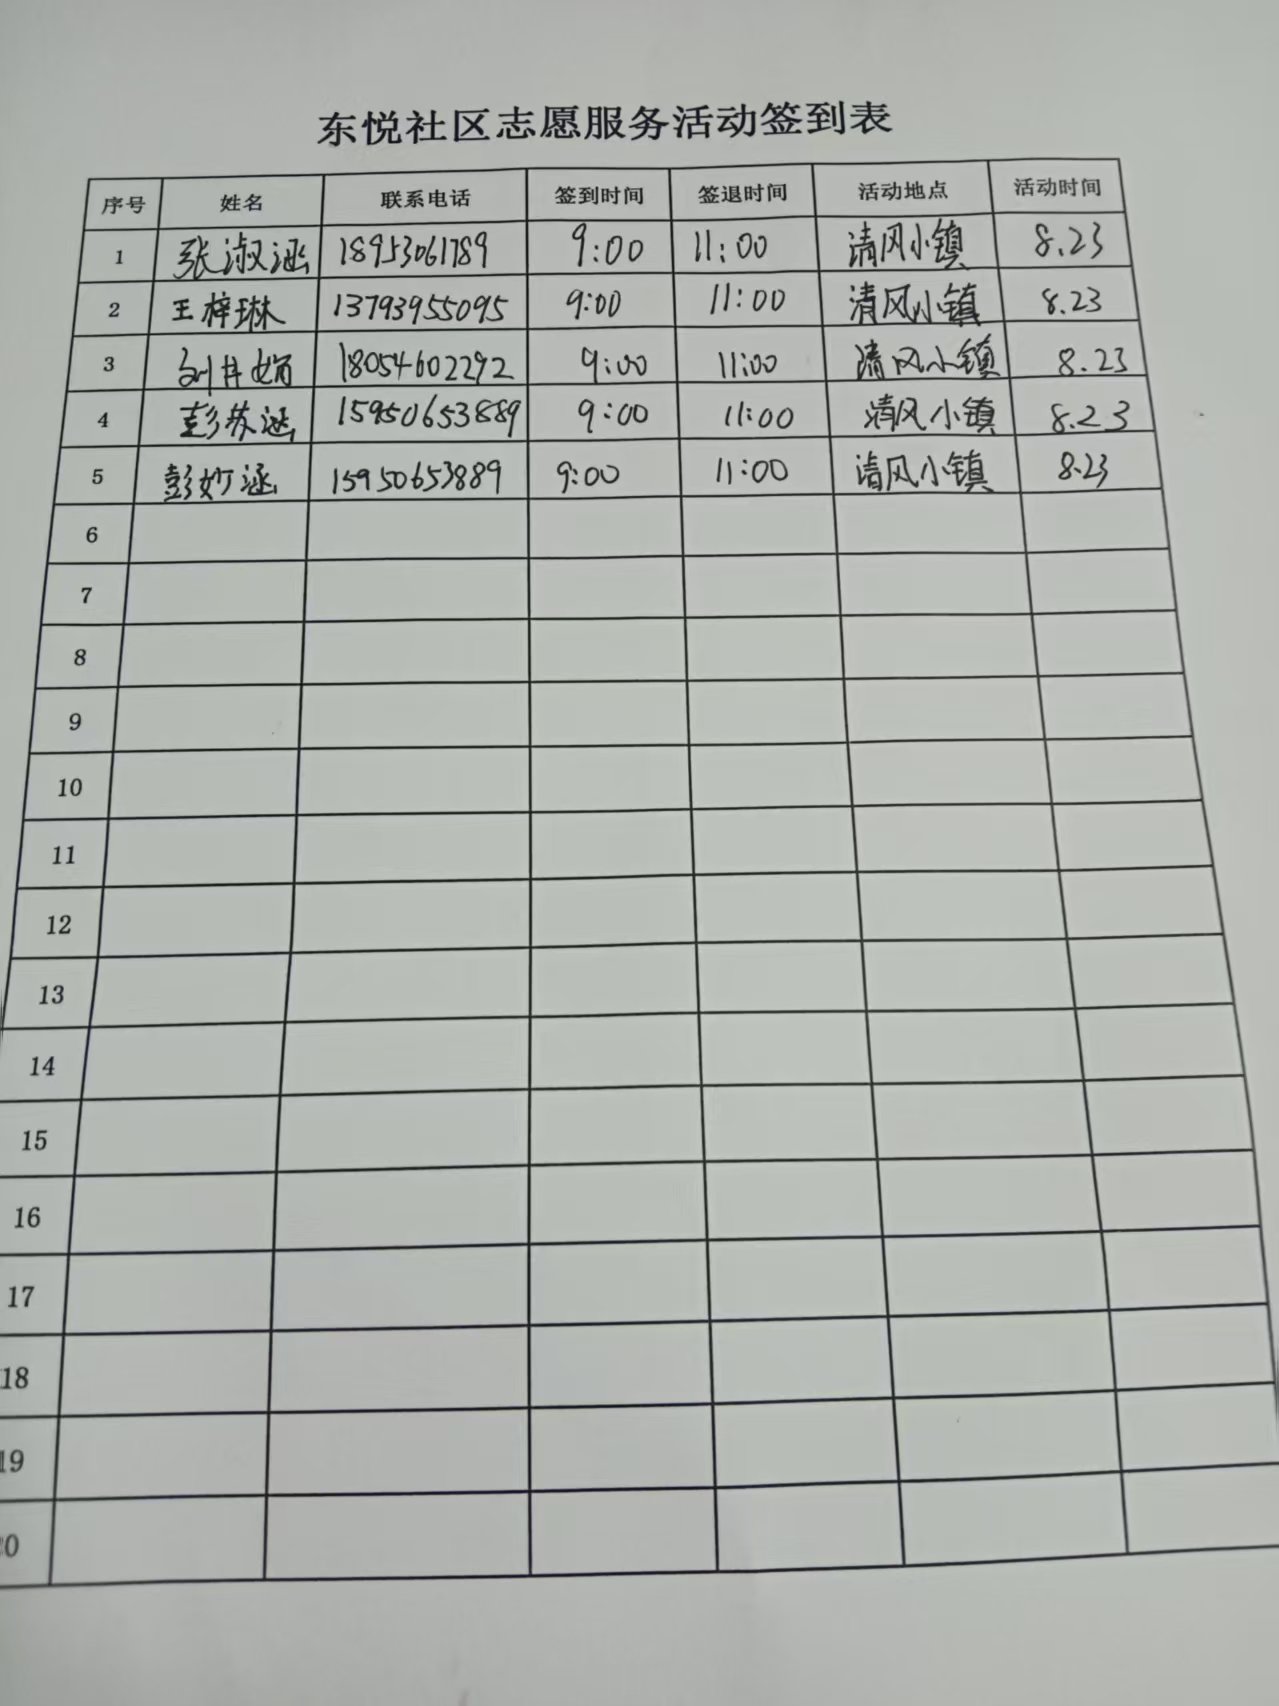 东悦社区志愿服务活动签到表
序号 姓名 联系电话 签到时间 签退时间 活动地点 活动时间
1 张淑涵 18953061789 9:00 11:00 清风小镇 8.23
2 王梓琳 13793955095 9:00 11:00 清风小镇 8.23
3 18054602292 9:00 11:00 清风小镇 8.23
4 彭苏涵 15950653889 9:00 11:00 清风小镇 8.23
5 彭妙涵 15950653889 9:00 11:00 清风小镇 8.23
6
7
8
9
10
11
12
13
14
15
16
17
18
19
20